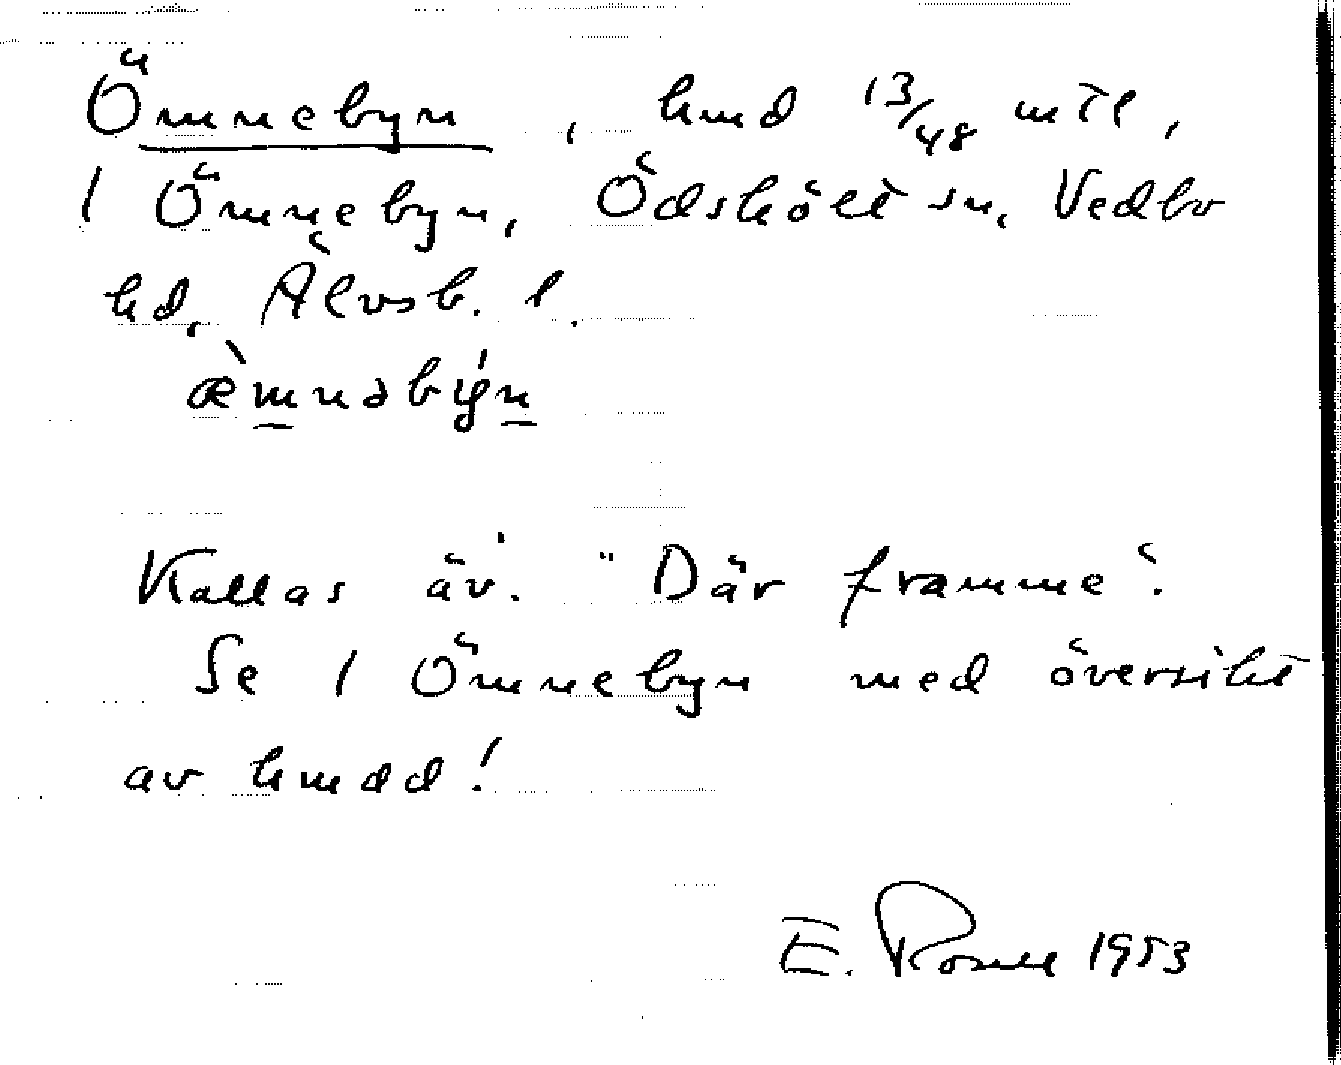 Ömnebyn, hmd 13/48 mtl,
1 Ömnebyn, Ödskölt sn, Vedbo
hd, Älvsb. l.
æ̀m̲nəbýn̲
Kallas äv. "Där framme".
Se 1 Ömnebyn med översikt
av hmdd!
E. Rosell 1953